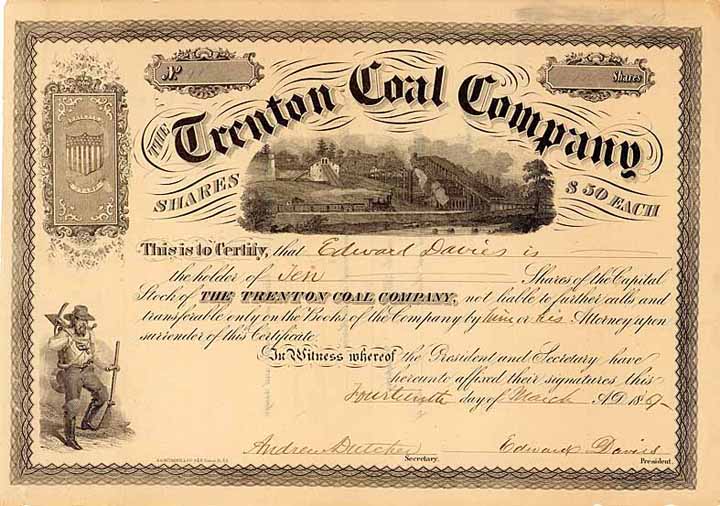 No Shares
THE Trenton Coal Company
SHARES $50 EACH
This is to Certify, that Edward Davies is
the holder of Ten Shares of the Capital
Stock of THE TRENTON COAL COMPANY, not liable to further calls and
transferable only on the Books of the Company by him or his Attorney upon
surrender of this Certificate.
In Witness whereof the President and Secretary have
hereunto affixed their signatures this
Fourteenth day of March AD 186
Andrew Dutcher Edward Davies
Secretary. President.